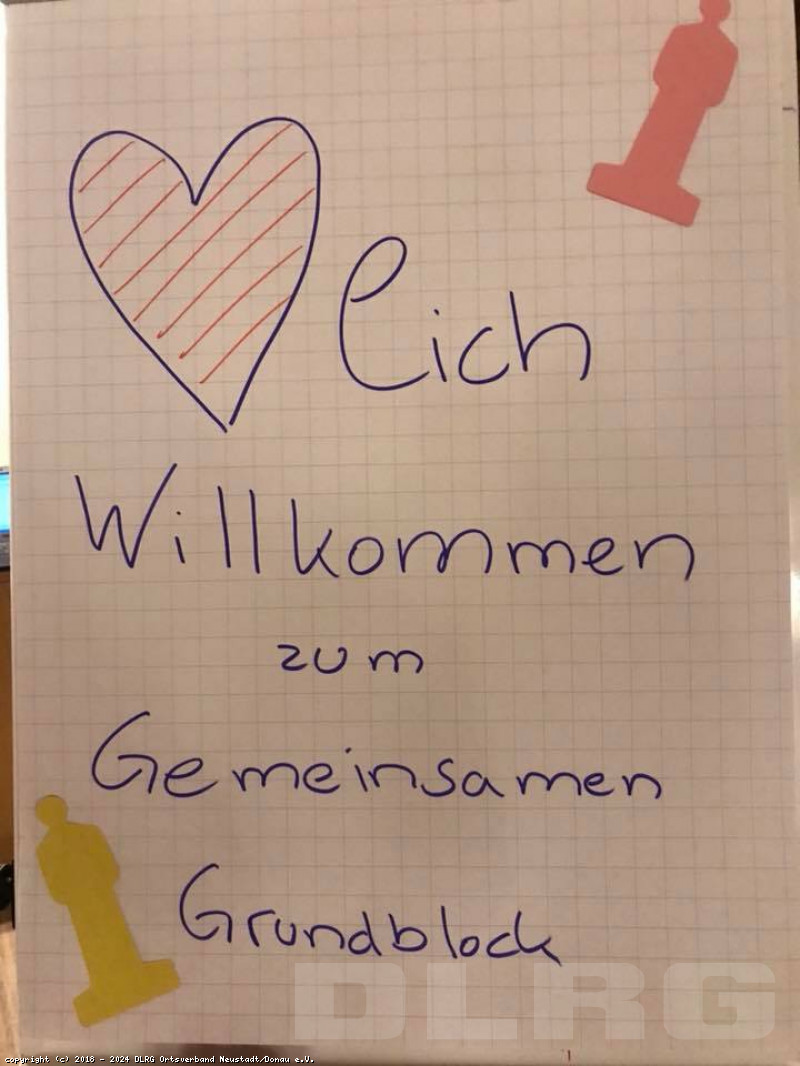 lich
Willkommen
zum
Gemeinsamen
Grundblock
DLRG
copyright (c) 2018 - 2024 DLRG Ortsverband Neustadt/Donau e.V.